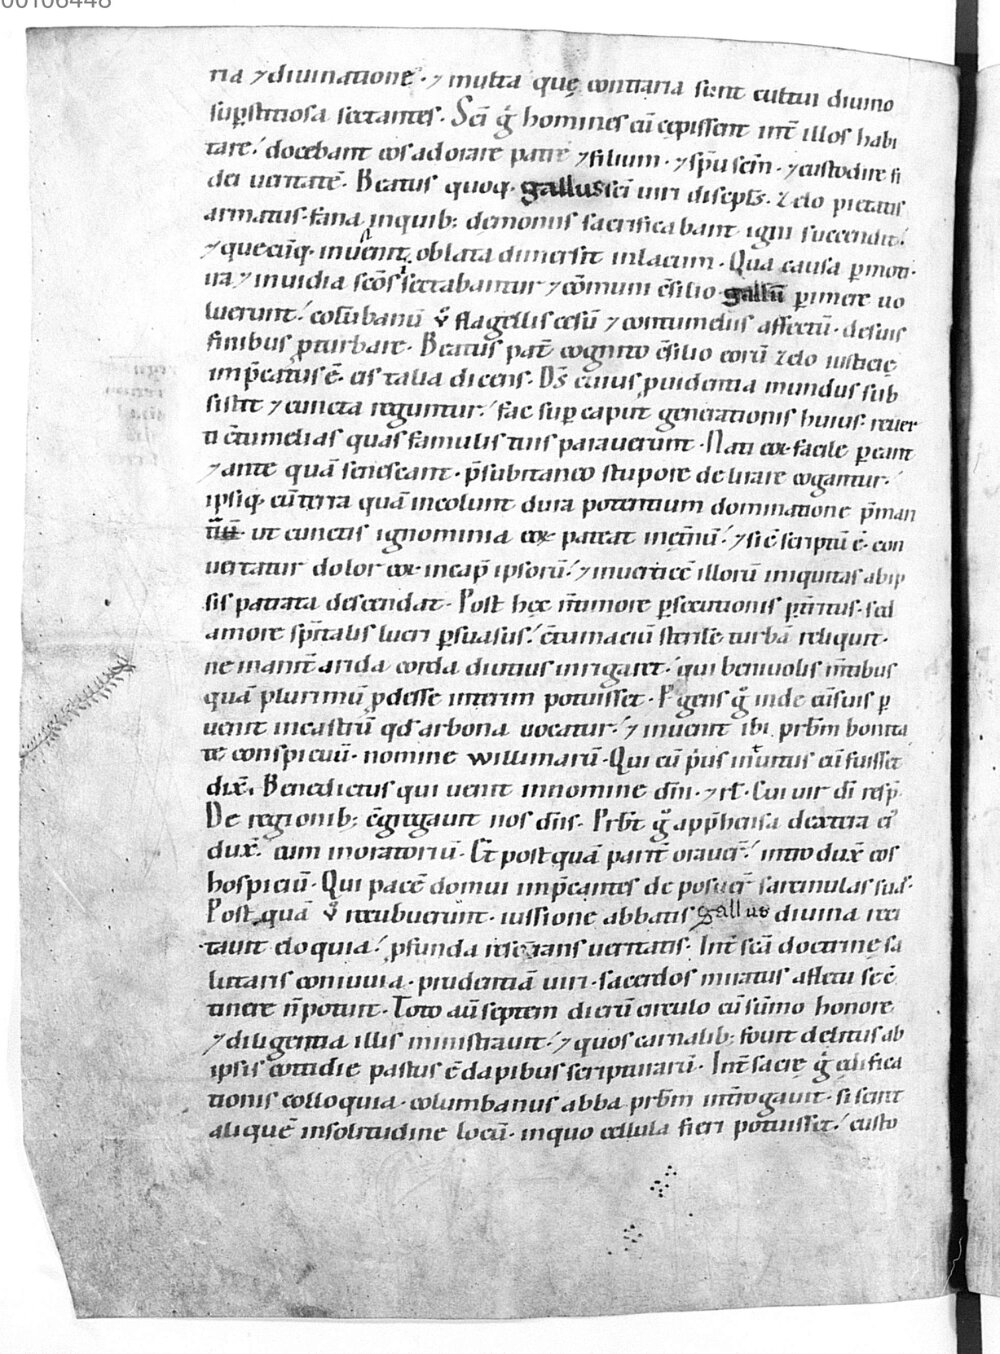 00106448
ria ⁊ diuinatione᷒· ⁊ multa quę contraria sunt cultui diuino
sup̄stitiosa sectantes. Sc̄i g̊ homines cū cępissent int̄ illos habi
tare⸝ docebant eos adorare patrē ⁊ filium· ⁊ sp̄m sc̄m· ⁊ custodire fi
dei ueritatē. Beatus quoq· gallus sc̄i uiri discipl̄s· zelo pietatis
armatus· fana inquib; demoniis sacrificabant igni succendit⸝
⁊ quecūq· inuenit oblata dimersit inlacum. Qua causa p̄moti·
ira ⁊ inuidia sc̄os sectabantur ⁊ cōmuni c̄silio gallū p̄imere uo
luerunt⸝ colūbanū ů flagellis cesū ⁊ contumeliis affectū· desuis
finibus p̱turbare. Beatus pat̄ cognito c̄silio eorū zelo iusticię
imp̄catus ē· eis talia dicens. Ds̄ cuius p̱uidentia mundus sub
sistit ⁊ cuncta reguntur⸝ fac sup̄ caput generationis huius· reuer
ti c̄tumelias quas famulis tuis parauerunt. Nati eoꝝ facile p̄eant
⁊ ante quā senescant· p̄ subitaneo stupore delirare cogantur⸝
ipsiq· cū terra quā incolunt dura potentium dominatione p̄man
ut cunctis ignominia eoꝝ pateat inet̄nū⸝ ⁊ sic̄ scriptū ē· con
uertatur dolor eoꝝ incap̄ ipsorū⸝ ⁊ inuerticē illorū iniquitas abip
sis patrata descendat. Post hęc n̄ timore p̄secutionis p̄t̄ritus· sed
amore sp̄italis lucri p̄suasus⸝ c̄tumaciū sterilē turbā reliquit·
ne manēt arida corda diutius inrigaret⸝ qui beniuolis m̄tibus
quā plurimū p̱desse interim potuisset. P̱gens g̊ inde cū suis p̄
uenit incastrū qd̄ arbona uocatur⸝ ⁊ inuenit ibi prb̄m bonita
te conspicuū· nomine willimarū. Qui cū p̄us inuitus eū fuisset
dix̄. Benedictus qui uenit innomine dn̄i· ⁊ rl̄. Cui uir dī resp̄.
De regionib; c̄gregauit nos dn̄s. Prb̄t g̊ app̄hensa dextera ei᷒
dux̄ eum inoratoriū. Et postquā parit̄ orauer̄⸝ introdux̄ eos
hospiciū. Qui pacē domui imp̄cantes deposuer̄ sarcinulas suas.
Post quā ů recubuerunt· iussione abbatis gallus diuina reci
tauit eloquia⸝ p̱funda reserans ueritatis. Int̄ sc̄a doctrinę sa
lutaris conuiuia· prudentiā uiri· sacerdos miratus afletu sec̄
tinere n̄ potuit. Toto aū septem dierū circulo cū sūmo honore
⁊ diligentia illis ministrauit⸝ ⁊ quos carnalib; fouit delitus ab
ipsis cottidie pastus ē dapibus scripturarū. Int̄ sacrę g̊ edifica
tionis colloquia· columbanus abba prb̄m int̄rogauit· si sciret
aliquē insolitudine locū· inquo cellula fieri potuisset⸝ custo